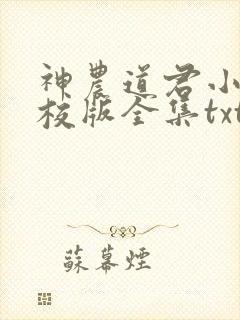 神農道君小
校版全集txt
蘇幕煙